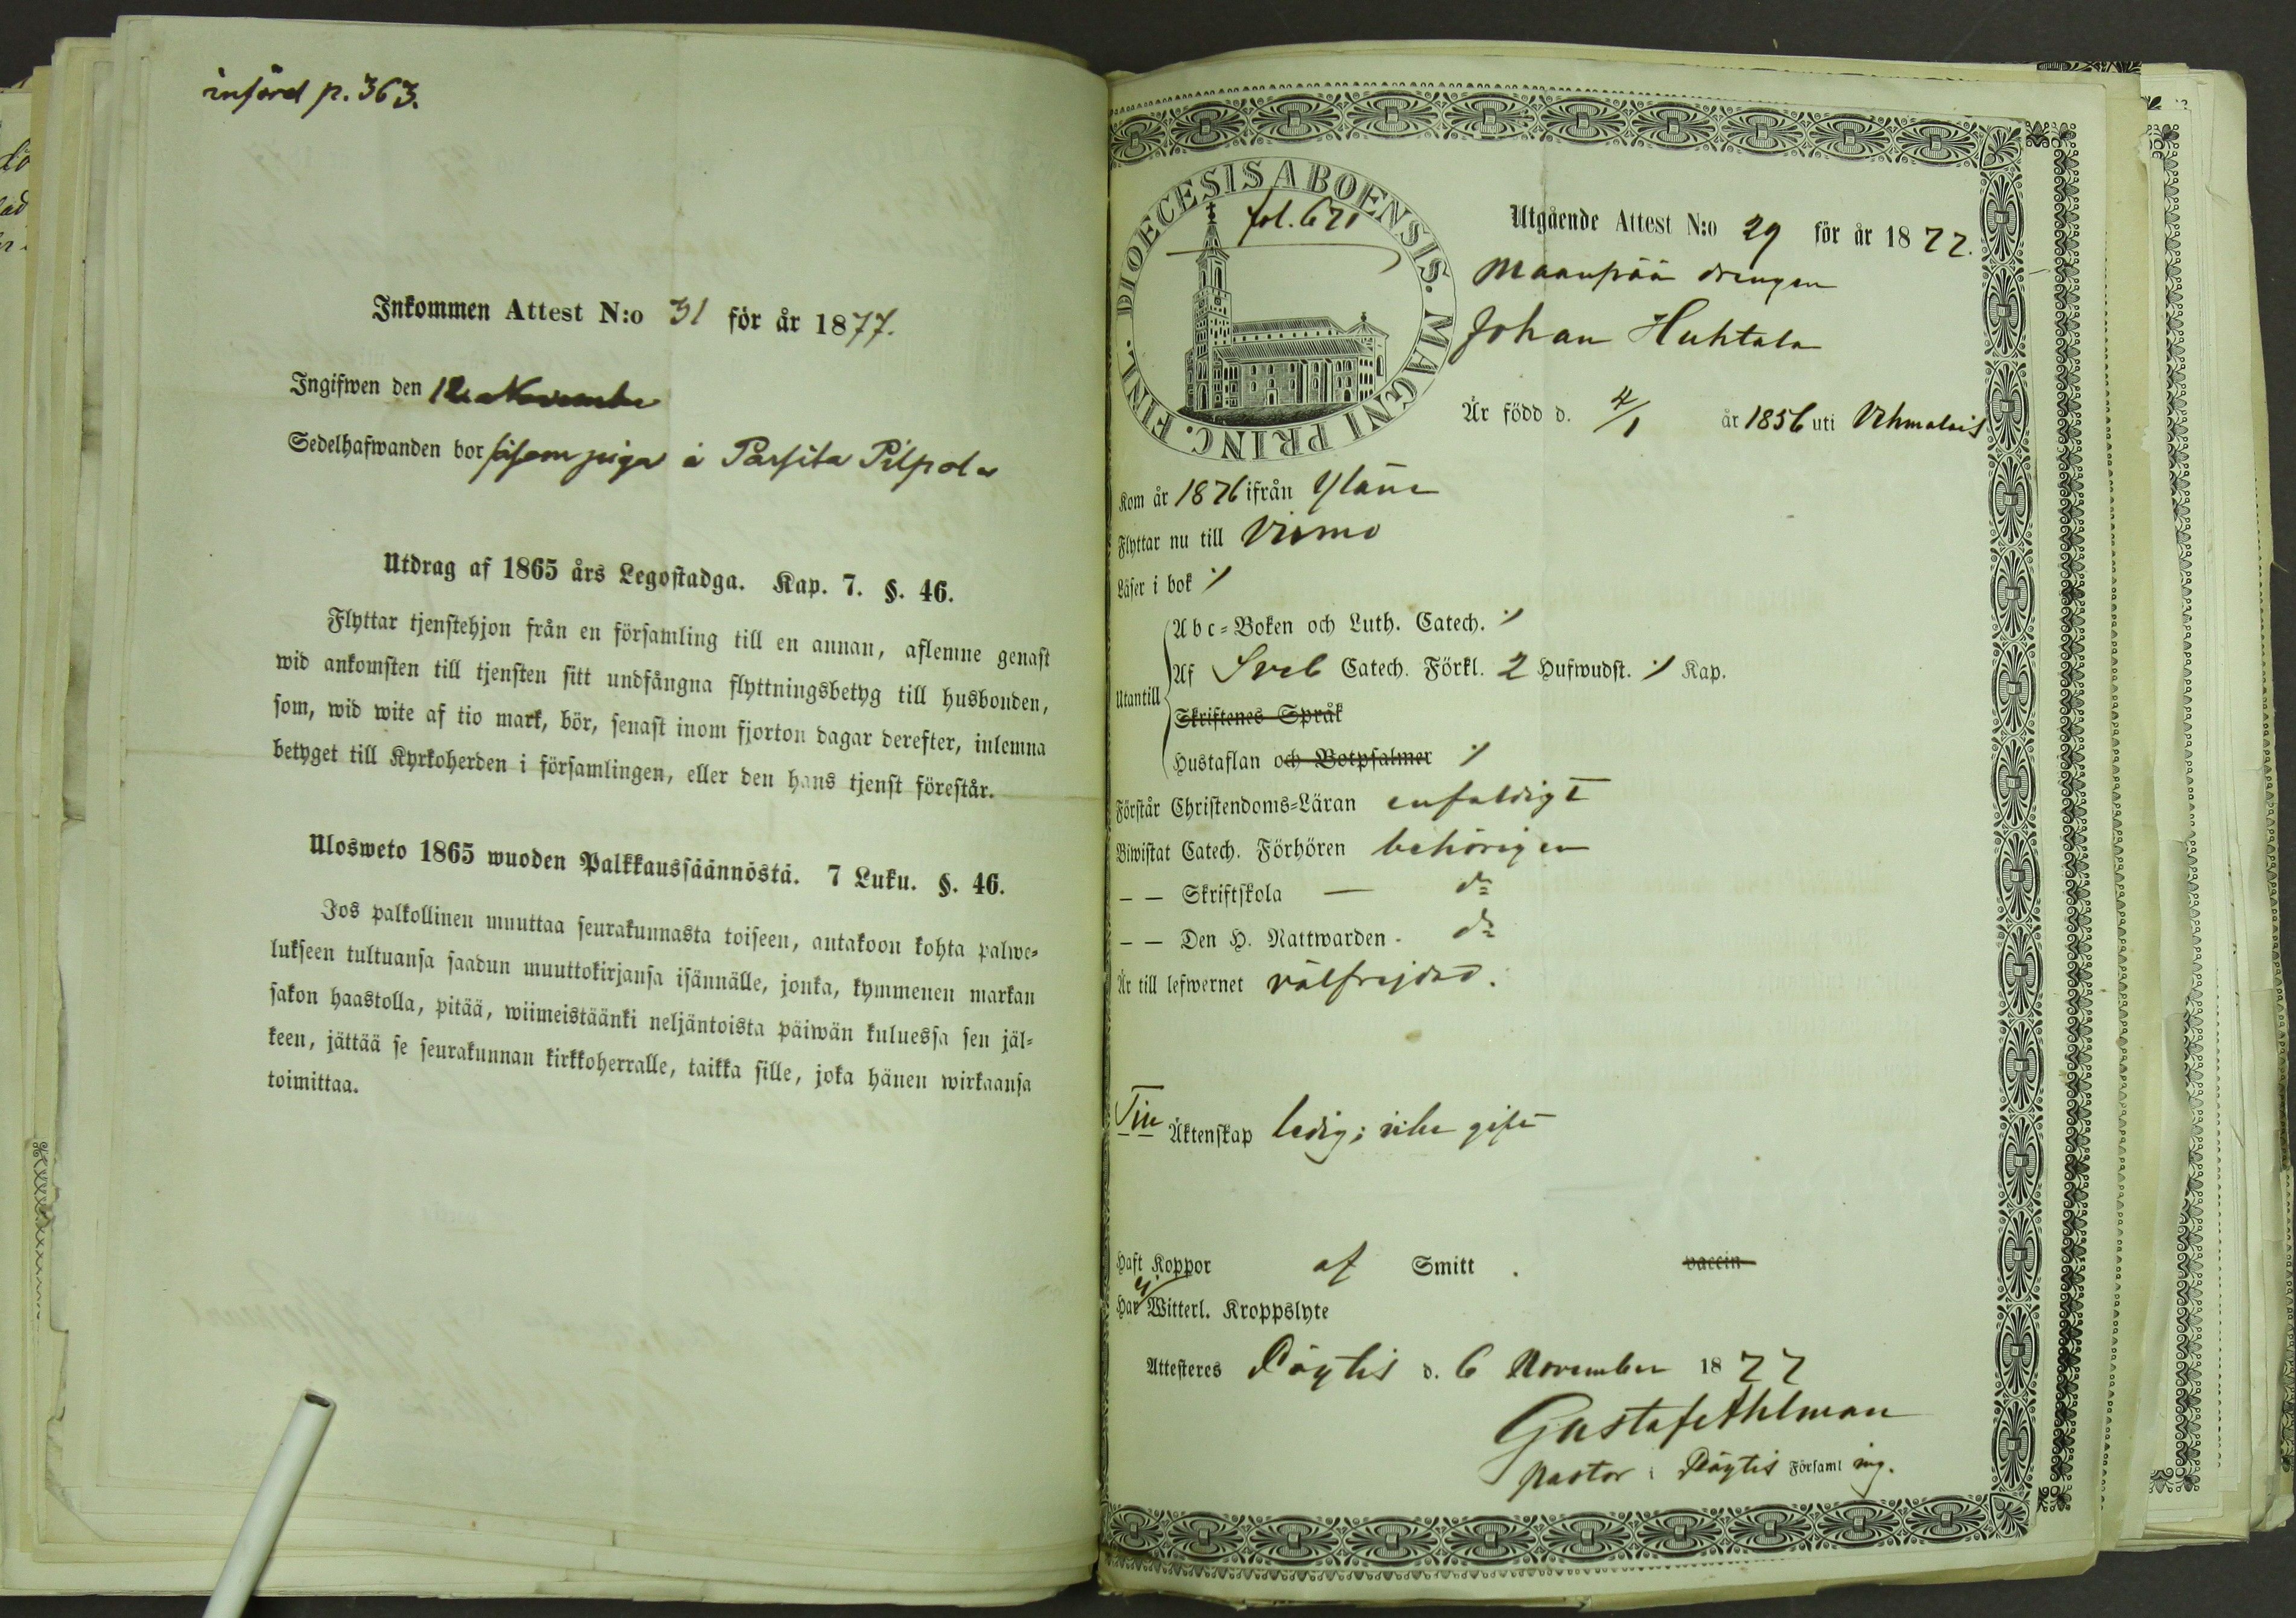 införd p. 363.
Inkommen Attest N:o 31 för år 1877.
Ingifwen den 12 November
Sedelhafwanden bor såsom piga å Parsila Pilpola
Utdrag af 1865 års Legostadga. Kap. 7. §. 46.
Flyttar tjenstehjon från en församling till en annan, aflemne genast
wid ankomsten till tjensten sitt undfångna flyttningsbetyg till husbonden,
som, wid wite af tio mark, bör, senast inom fjorton dagar derefter, inlemna
betyget till Kyrkoherden i församlingen, eller den hans tjenst förestår.
Ulosweto 1865 wuoden Palkkaussäännöstä. 7 Luku. §. 46.
Jos palkollinen muuttaa seurakunnasta toiseen, antakoon kohta palwe-
lukseen tultuansa saadun muuttokirjansa isännälle, jonka, kymmenen markan
sakon haastolla, pitää, wiimeistäänki neljäntoista päiwän kuluessa sen jäl-
keen, jättää se seurakunnan kirkkoherralle, taikka sille, joka hänen wirkaansa
toimittaa.
DIOECESIS ABOENSIS. MAGNI PRINC. FINL.
fol. 671
Utgående Attest N:o 29 för år 1877.
Maanpää drengen
Johan Huhtala
Är född d. 4/1 år 1856 uti Vehmalais
Kom år 1876 ifrån Yläne
Flyttar nu till Virmo
Läser i bok ·/.
Utantill
Abc-Boken och Luth. Catech. ·/.
Af Sveb Catech. Förkl. 2 Hufwudst. ·/. Kap.
Skriftenes Språk
Hustaflan och Botpsalmer ·/.
Förstår Christendoms-Läran enfaldigt
Biwistat Catech. Förhören behörigen
– – Skriftskola — do
– – Den H. Nattwarden - do
Är till lefwernet välfrejdad.
Till Äktenskap ledig; icke gift
Haft Koppor af Smitt. vaccin
Har ej Witterl. Kroppslyte
Attesteres Pöytis d. 6 November 1877
Gustaf Ahlman
Pastor i Pöytis Församling.